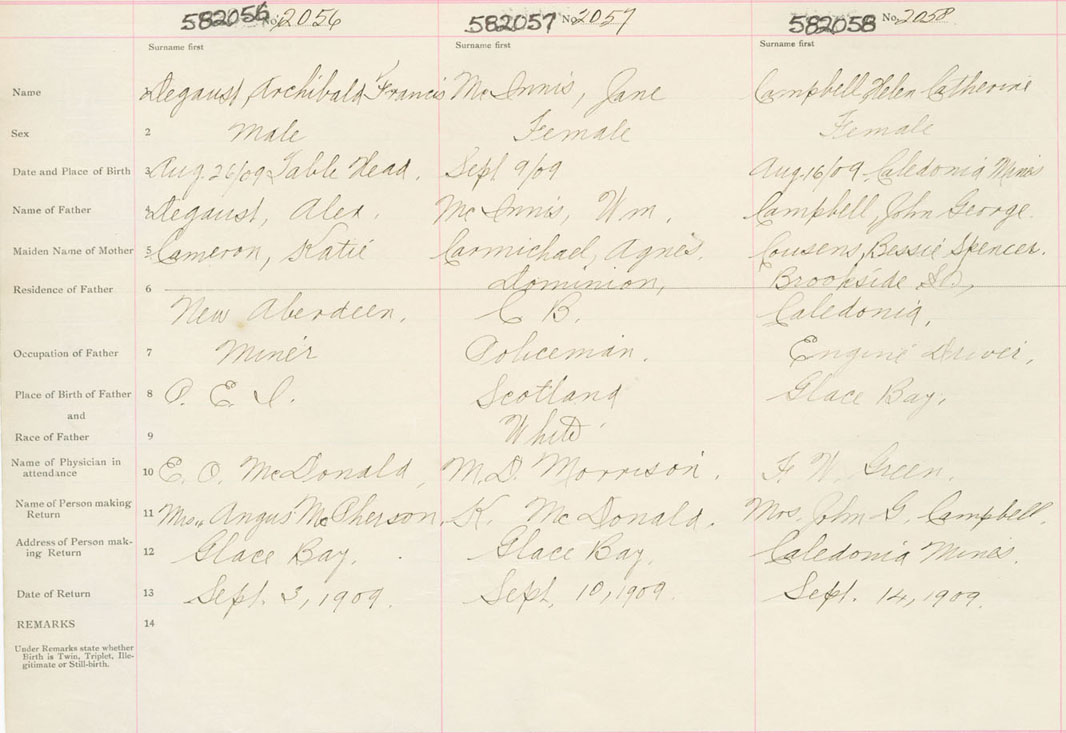 582056 No. 2056 582057 No. 2057 582058 No. 2058
Surname first Surname first Surname first
Name 1 Degaust, Archibald Francis McInnis, Jane Campbell, Helen Catherine
Sex 2 Male Female Female
Date and Place of Birth 3 Aug. 26/09 Table Head. Sept 9/09 Aug. 16/09 Caledonia Mines
Name of Father 4 Degaust, Alex. McInnis, Wm. Campbell, John George.
Maiden Name of Mother 5 Cameron, Katie Carmichael, Agnes. Cousens, Bessie Spencer.
Residence of Father 6 Dominion, Brookside St.,
New Aberdeen. C B. Caledonia.
Occupation of Father 7 Miner Policeman. Engine Driver,
Place of Birth of Father 8 P. E. I. Scotland Glace Bay.
and
Race of Father 9 White
Name of Physician in
attendance 10 E. O. McDonald, M. D. Morrison. F. W. Green.
Name of Person making
Return 11 Mrs. Angus McPherson. K. McDonald. Mrs. John G. Campbell.
Address of Person mak-
ing Return 12 Glace Bay. Glace Bay. Caledonia Mines.
Date of Return 13 Sept. 3, 1909. Sept, 10, 1909. Sept. 14, 1909.
REMARKS 14
Under Remarks state whether
Birth is Twin, Triplet, Ille-
gitimate or Still-birth.